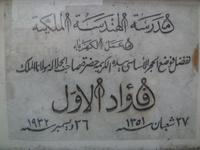 مدرسة الهندسة الملكية
معمل الكهرباء
تفضل فوضع الحجر الأساسى بيده الكريمة حضرة صاحب الجلالة مولانا الملك
فؤاد الأول
٢٧ شعبان ١٣٥١ ٢٦ ديسمبر ١٩٣٢